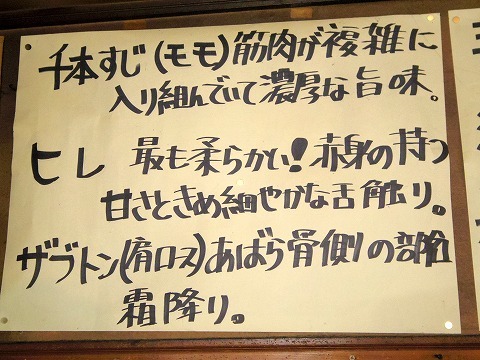 千本すじ(モモ)筋肉が複雑に
入り組んでいて濃厚な旨味。
ヒレ 最も柔らかい!赤身の持つ
甘さときめ細やかな舌触り。
ザブトン(肩ロス)あばら骨側の部位
霜降り。